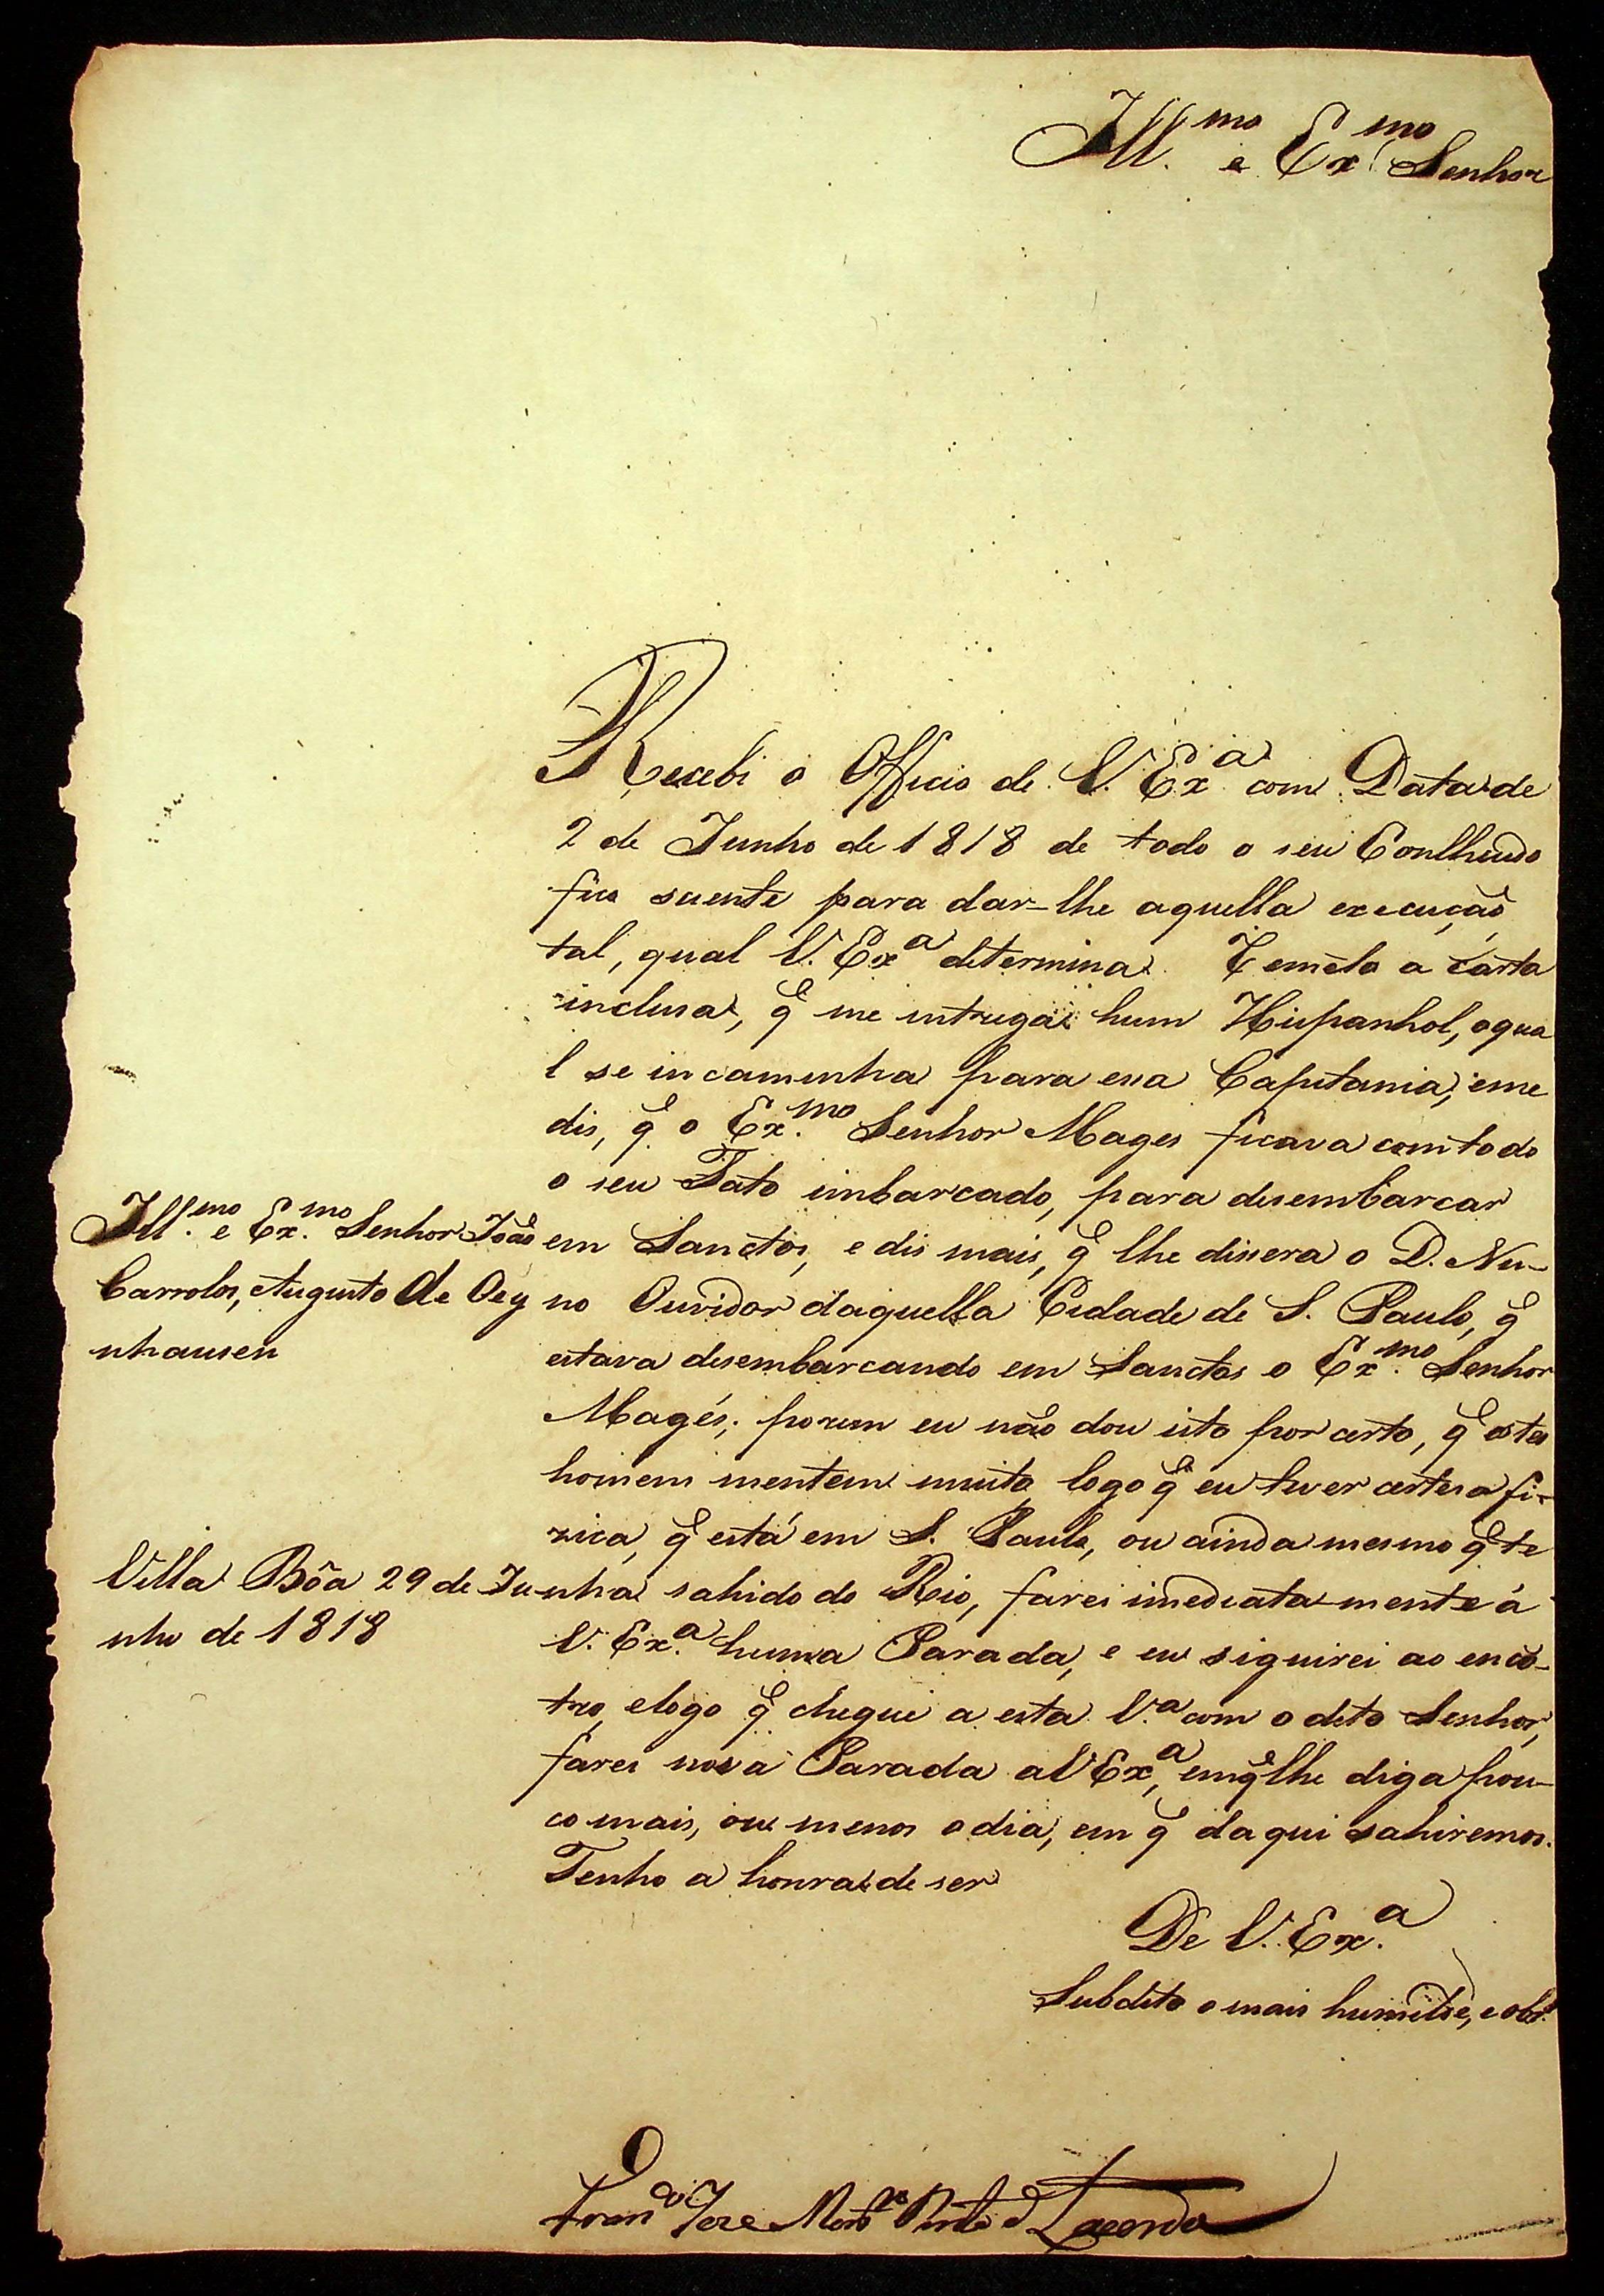 Ill.mo e Ex.mo Senhor
Recebi o Officio de V. Ex.a com Data de
2 de Junho de 1818 de todo o seu Conlheudo
fico suente para dar-lhe aquella execução,
tal, qual V. Ex.a determina. Remeto a carta
inclusa, q̃ me intregou hum Hispanhol, oqua
l se incaminha para essa Capitania; eme
dis, q̃ o Ex.mo Senhor Mages ficava com todo
o seu Fato imbarcado, para desembarcar
em Sanctos, e dis mais, q̃ lhe dissera o D. Nu-
no Ouvidor daquella Cidade de S. Paulo, q̃
estava desembarcando em Sanctos o Ex.mo Senhor
Magés; porem eu não dou isto por certo, q̃ estes
homem mentem muito logo q̃ eu tiver certesa fi-
zica, q̃ está em S. Paulo, ou ainda mesmo q̃ te
nha sahido do Rio, farei imediata-mente á
V. Ex.a huma Parada, e eu siguirei ao encõ-
tro, elogo q̃ chegue a esta V.a com o dito Senhor,
farei nova Parada a V Ex.a, em q̃ lhe diga pou-
co mais, ou menos o dia, em q̃ da qui sahiremos.
Tenho a honra de ser
De V. Ex.a
Subdito o mais humilde, e obd.e
Ill.mo e Ex.mo Senhor João
Carrolos, Augusto de Oey
nhausen
Villa Bôa 29 de Ju
nho de 1818
Pinto de Lacerda